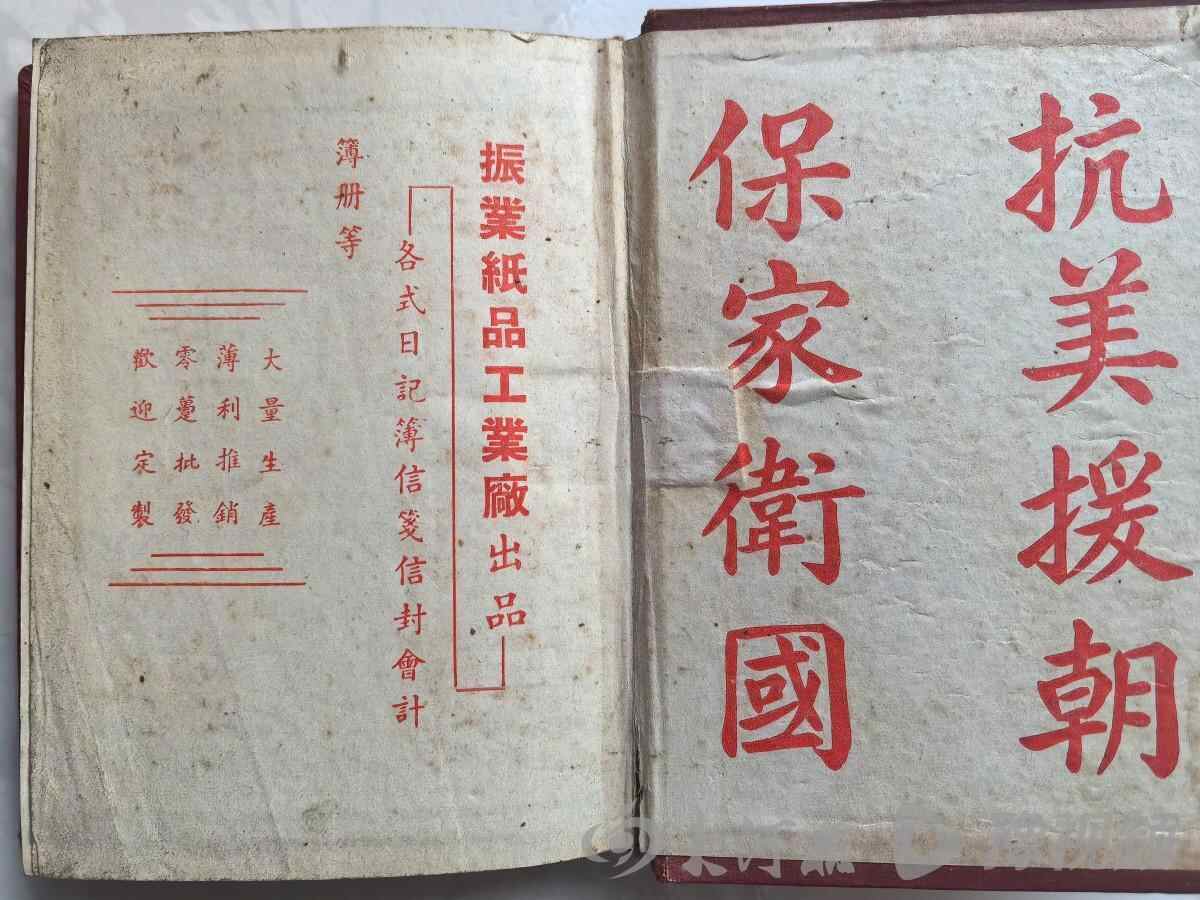 抗美援朝
保家衛國
振業紙品工業廠出品
各式日記簿信箋信封會計
簿册等
大量生產
薄利推銷
零躉批發
歡迎定製